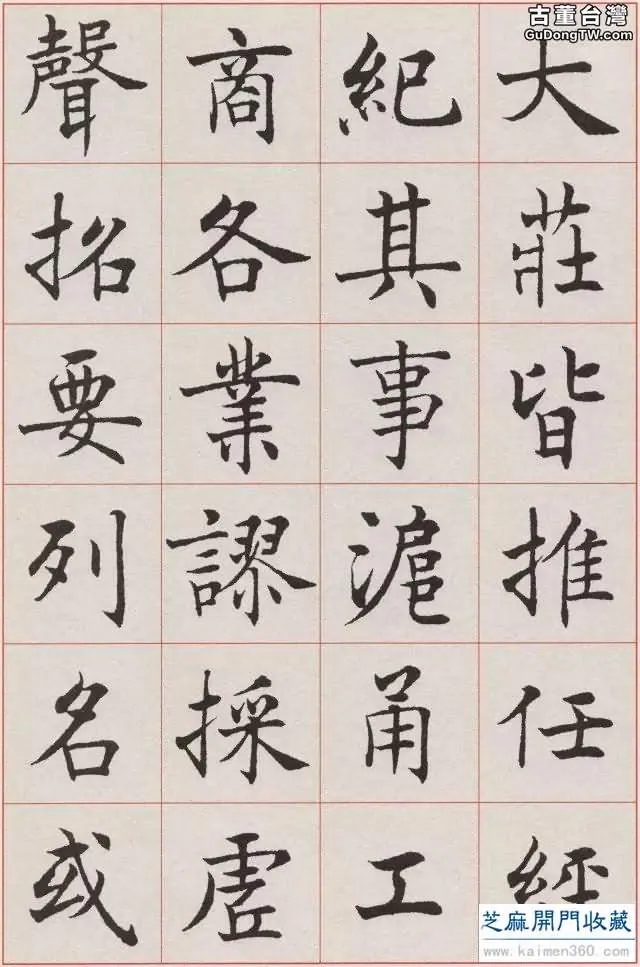 古董台灣
GuDongTW.com
大莊皆推任經
紀其事滬甬工
商各業謬採虛
聲招要列名或
芝麻開門收藏
www.kaimen360.com